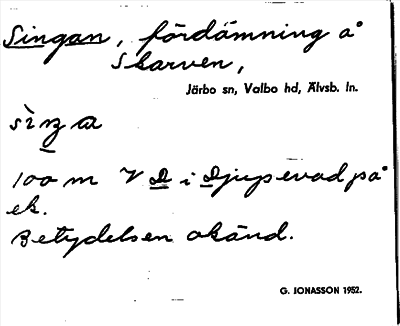 Singan, fördämning å
Skarven,
Järbo sn, Valbo hd, Älvsb. ln.
sìŋa
100 m V D i Djupevad på
ek.
Betydelsen okänd.
G. JONASSON 1952.